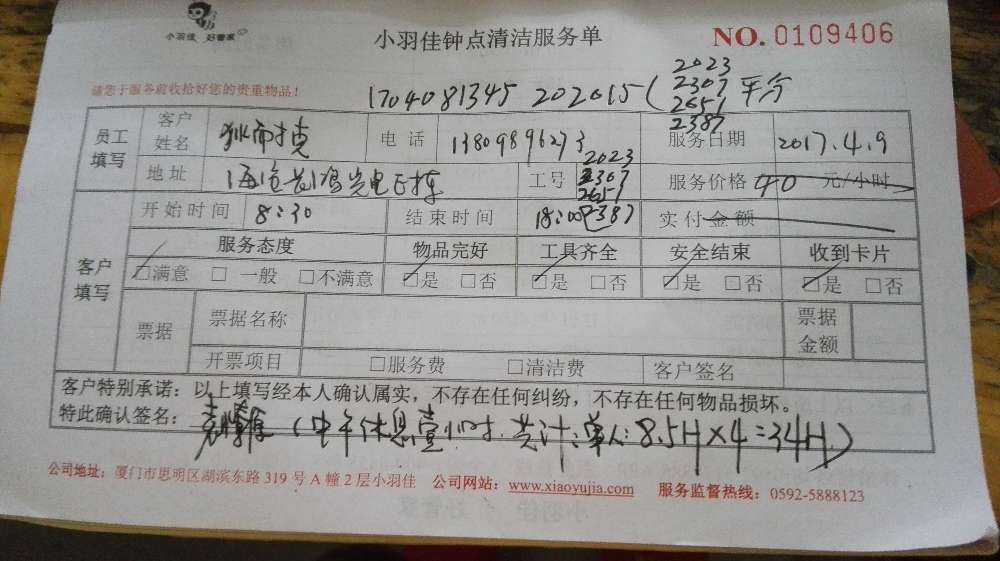 小羽佳 好管家
小羽佳钟点清洁服务单
NO. 0109406
请您于服务前收拾好您的贵重物品！
1704081345 202615 ( 2023 2307 2651 2387 平分
员工填写
客户姓名 电话 13809896273 服务日期 2017.4.9
地址 工号 2023 2307 2651 2387 服务价格 40 元/小时
开始时间 8:30 结束时间 18:00 实付金额
客户填写
服务态度 物品完好 工具齐全 安全结束 收到卡片
□满意 □一般 □不满意 □是 □否 □是 □否 □是 □否 □是 □否
票据 票据名称 票据金额
开票项目 □服务费 □清洁费 客户签名
客户特别承诺：以上填写经本人确认属实，不存在任何纠纷，不存在任何物品损坏。
特此确认签名： (中午休息壹小时. 共计: 单人: 8.5H×4=34H.)
公司地址：厦门市思明区湖滨东路 319 号 A 幢 2 层小羽佳 公司网站：www.xiaoyujia.com 服务监督热线：0592-5888123